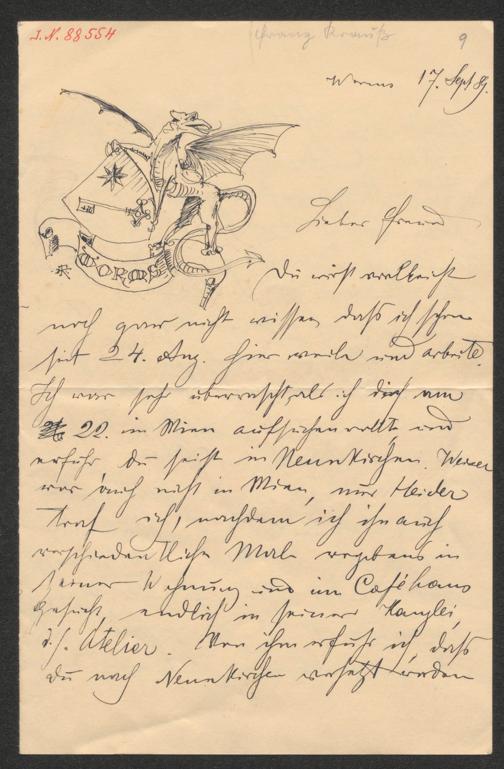 I.N. 88554
Franz Krauß
9
Worms 17. Sept 89.
WORMS
Lieber Freund
Du wirst vielleicht
noch gar nicht wissen, daß ich schon
seit 24. Aug. hier weile und arbeite.
Ich war sehr überrascht, als ich dich am
22. in Wien aufsuchen wollte und
erfuhr, Du seist in Neunkirchen.
war auch nicht in Wien, nur Heider
traf ich, nachdem ich ihn auch
verschiedentliche Male vergebens in
seiner Wohnung und im Caféhaus
gesucht, endlich in seiner Kanzlei,
d. h. Atelier. Von ihm erfuhr ich, daß
du nach Neunkirchen versetzt worden